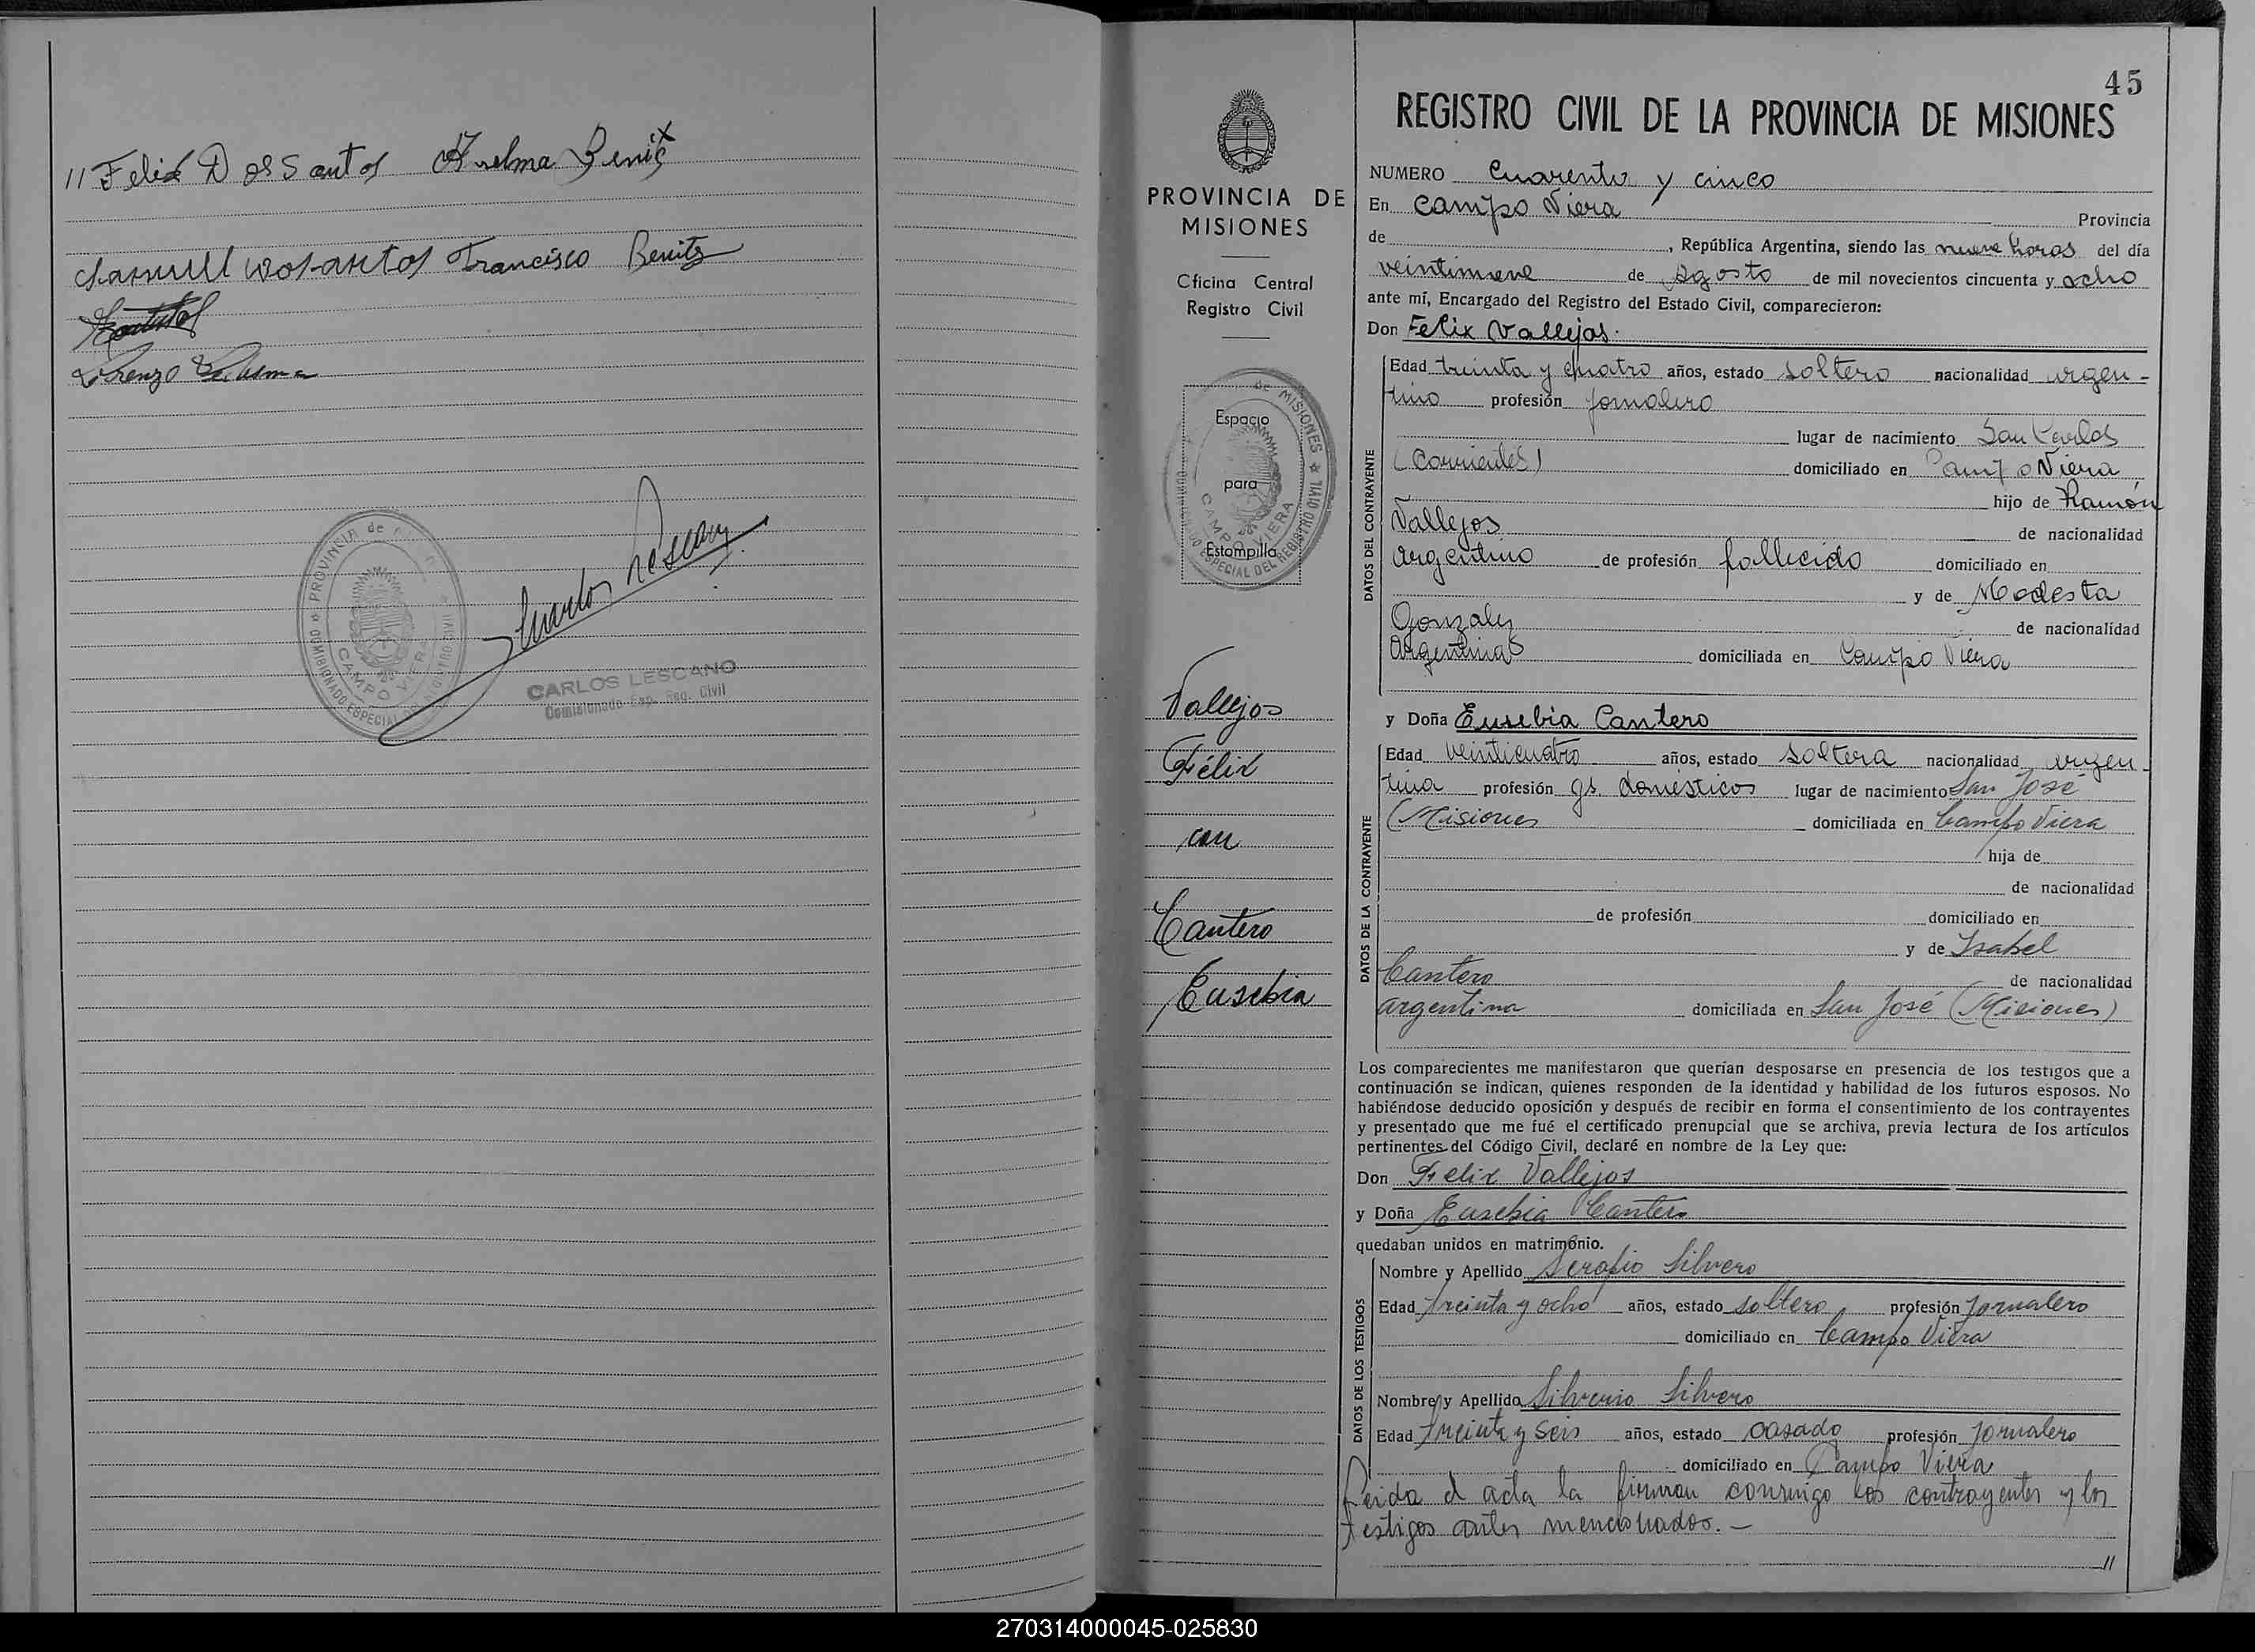 // Felix Dos Santos Anselma Benitz
Francisco Benitz
Lorenzo
PROVINCIA de
CAMPO VIERA
COMISIONADO ESPECIAL DEL REGISTRO CIVIL
CARLOS LESCANO
Comisionado Esp. Reg. Civil
PROVINCIA DE
MISIONES
Oficina Central
Registro Civil
Espacio
para
Estampilla
de MISIONES
CAMPO VIERA
ESPECIAL DEL REGISTRO CIVIL
Vallejos
Félix
con
Cantero
Eusebia
45
REGISTRO CIVIL DE LA PROVINCIA DE MISIONES
NUMERO Cuarenta y cinco
En Campo Viera Provincia
de , República Argentina, siendo las nueve horas del día
veintinueve de Agosto de mil novecientos cincuenta y ocho
ante mí, Encargado del Registro del Estado Civil, comparecieron:
Don Felix Vallejos.
DATOS DEL CONTRAYENTE
Edad treinta y cuatro años, estado soltero nacionalidad argen-
tino profesión jornalero
lugar de nacimiento San Carlos
(Corrientes) domiciliado en Campo Viera
hijo de Ramón
Vallejos de nacionalidad
argentino de profesión fallecido domiciliado en
y de Modesta
Gonzalez de nacionalidad
Argentina domiciliada en Campo Viera
y Doña Eusebia Cantero
DATOS DE LA CONTRAYENTE
Edad veinticuatro años, estado soltera nacionalidad argen-
tina profesión qs. domésticos lugar de nacimiento San José
(Misiones domiciliada en Campo Viera
hija de
de nacionalidad
de profesión domiciliado en
y de Isabel
Cantero de nacionalidad
argentina domiciliada en San José (Misiones)
Los comparecientes me manifestaron que querían desposarse en presencia de los testigos que a
continuación se indican, quienes responden de la identidad y habilidad de los futuros esposos. No
habiéndose deducido oposición y después de recibir en forma el consentimiento de los contrayentes
y presentado que me fué el certificado prenupcial que se archiva, previa lectura de los artículos
pertinentes del Código Civil, declaré en nombre de la Ley que:
Don Felix Vallejos
y Doña Eusebia Cantero
quedaban unidos en matrimonio.
DATOS DE LOS TESTIGOS
Nombre y Apellido Serafio Silvero
Edad treinta y ocho años, estado soltero profesión jornalero
domiciliado en Campo Viera
Nombre y Apellido Silverio Silvero
Edad treinta y seis años, estado casado profesión jornalero
domiciliado en Campo Viera
Leida el acta la firman conmigo los contrayentes y los
testigos antes mencionados. —
//
270314000045-025830